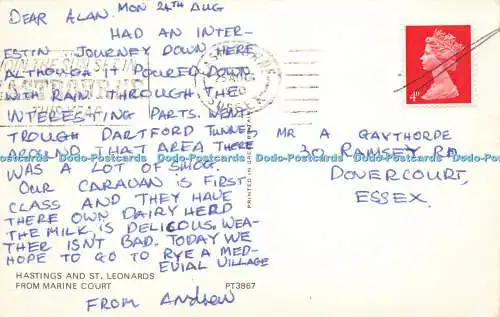 DEAR ALAN. MON 24TH AUG
HAD AN INTER-
ESTIN JOURNEY DOWN HERE
ALTHOUGH IT POURED DOWN
WITH RAIN THROUGH THE
INTERESTING PARTS. WENT
TROUGH DARTFORD TUNNEL
AROUND THAT AREA THERE
WAS A LOT OF SMOG.
OUR CARAVAN IS FIRST
CLASS AND THEY HAVE
THERE OWN DAIRY HERD
THE MILK IS DELICOUS. WEA-
THER ISNT BAD. TODAY WE
HOPE TO GO TO RYE A MED-
EVIAL VILLAGE
FROM Andrew
HASTINGS AND ST. LEONARDS
FROM MARINE COURT
PT3867
PRINTED IN GREAT BRITAIN
SUSSEX
4D
MR A GAYTHORPE
30 RAMSEY RD
DOVERCOURT,
ESSEX.
Dodo-Postcards Dodo-Postcards Dodo-Postcards Dodo-Postcards Dodo-Postcards